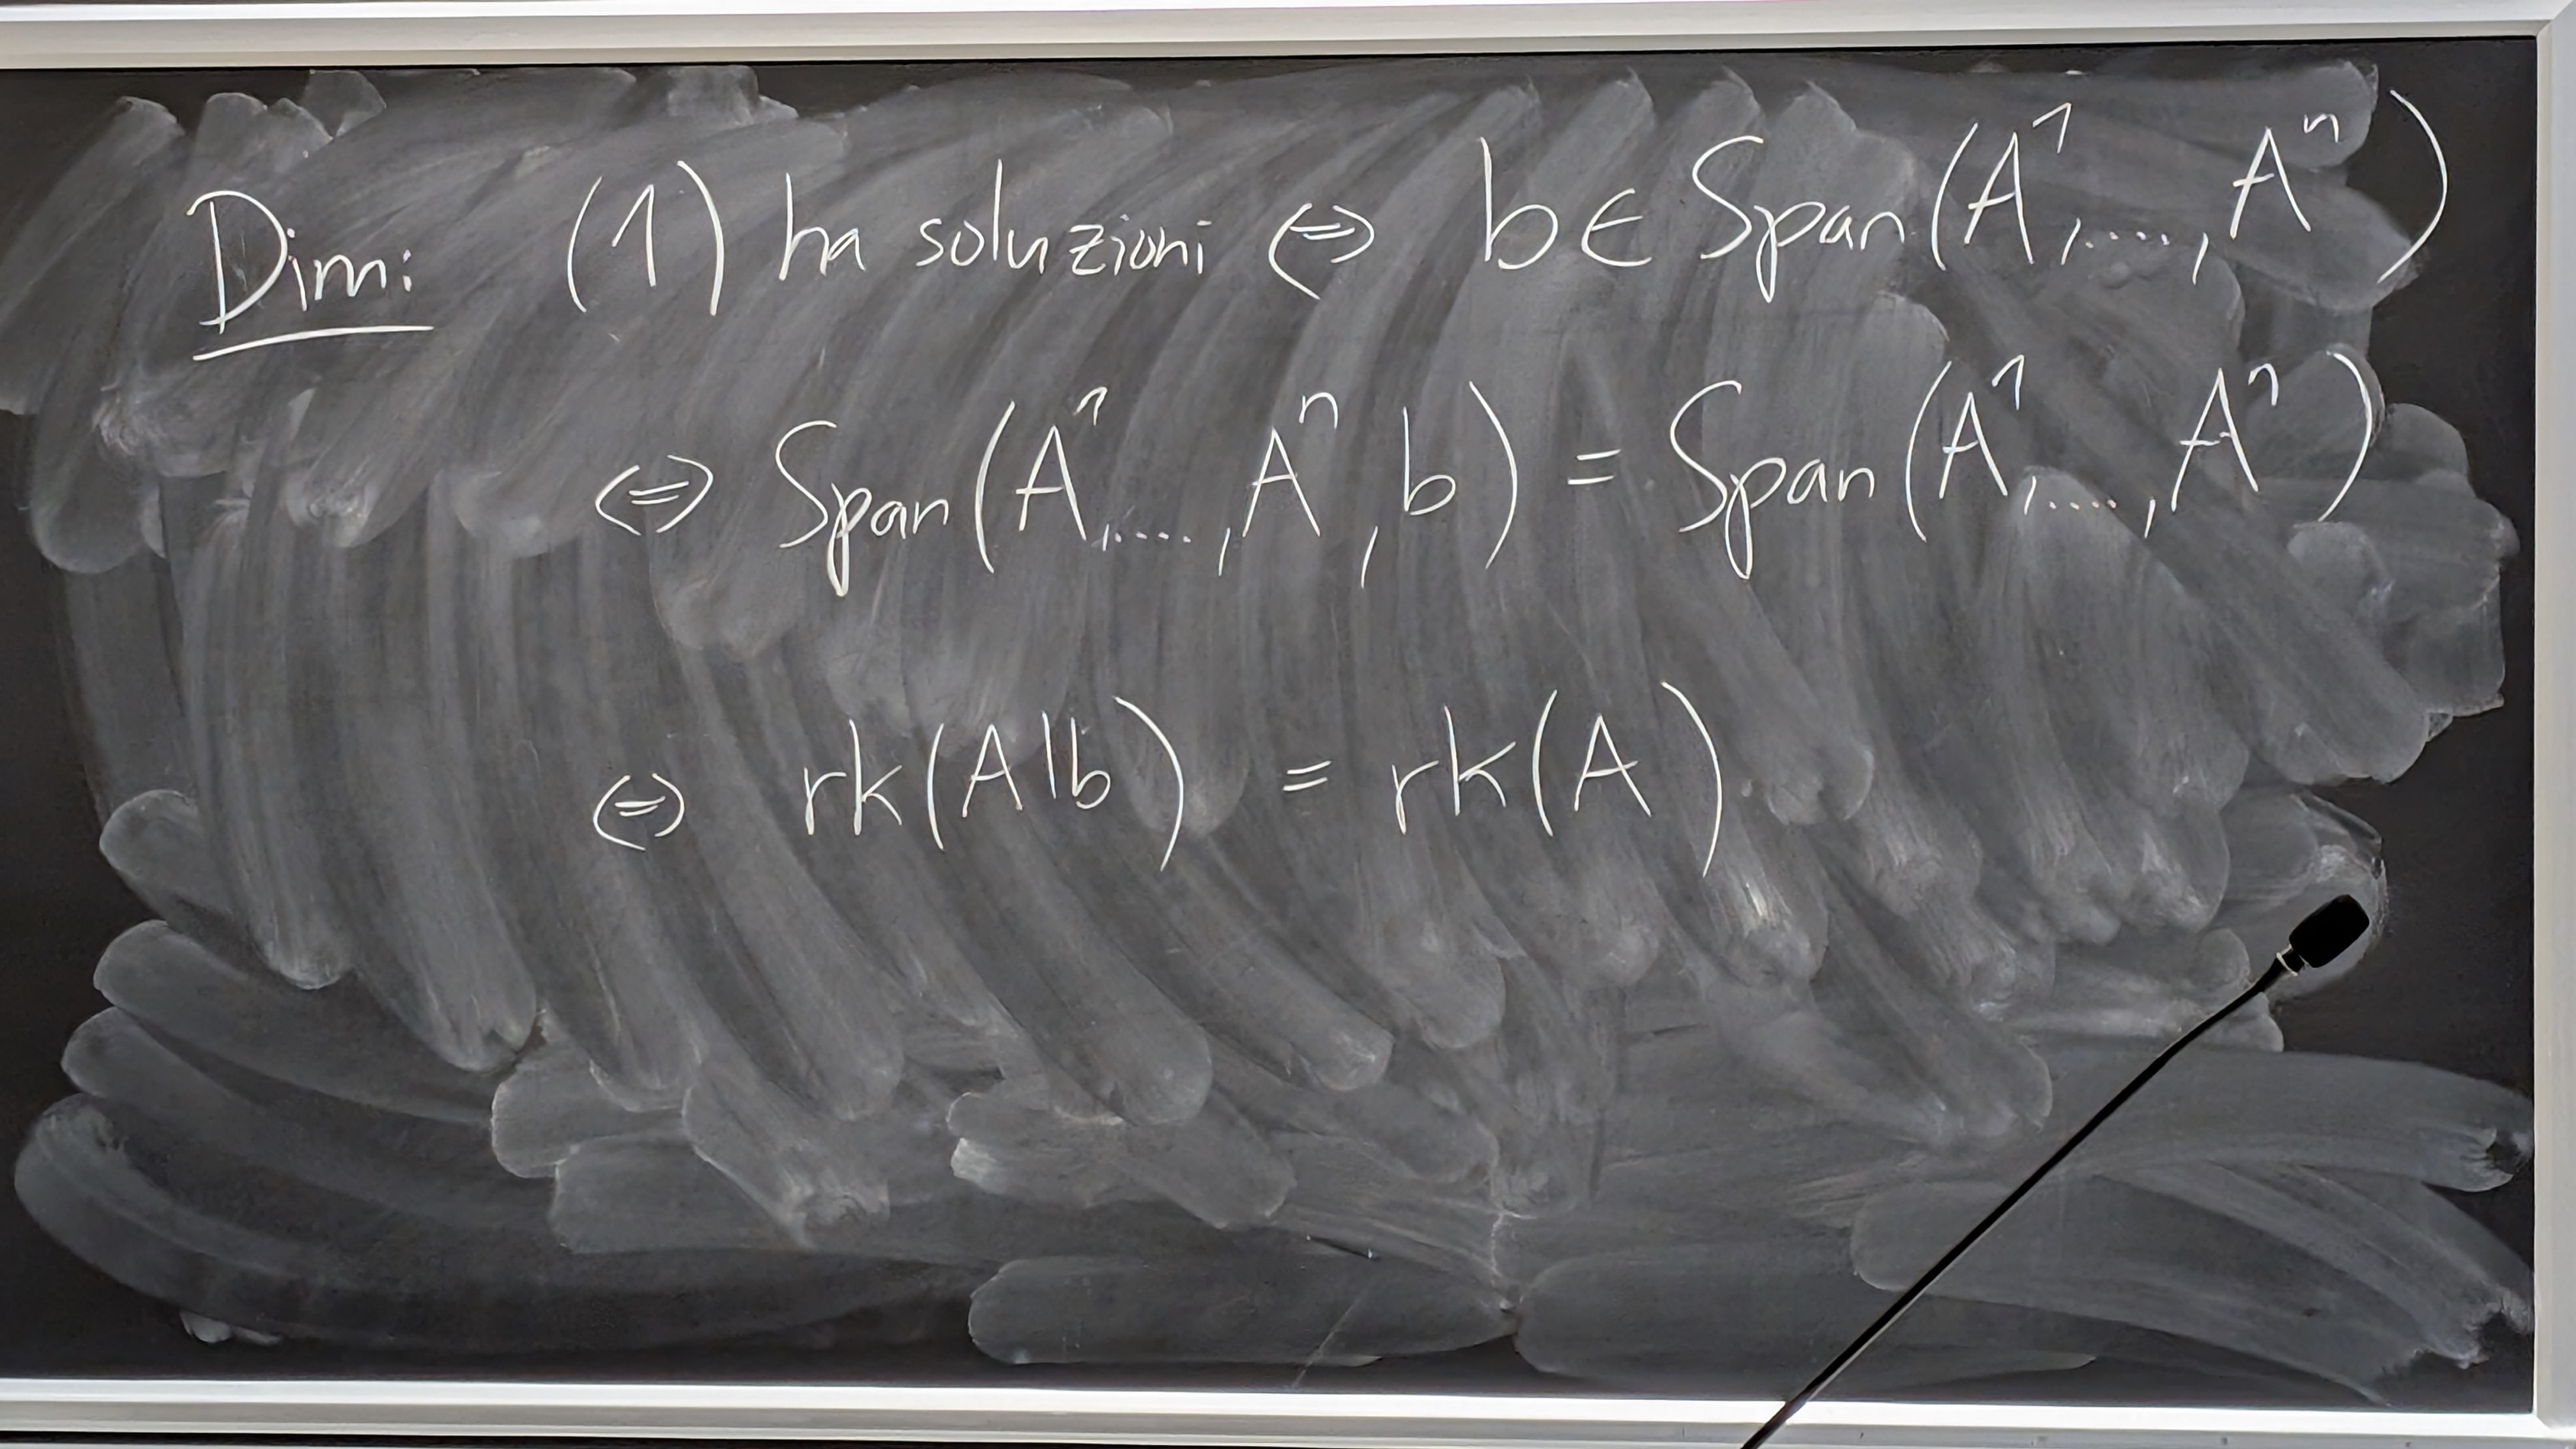 Dim: (1) ha soluzioni ⇔ b ∈ Span(A¹,....,Aⁿ)
⇔ Span(A¹,....,Aⁿ,b) = Span(A¹,....,Aⁿ)
⇔ rk(A|b) = rk(A).